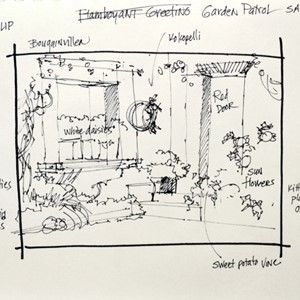 Flamboyant Greeting Garden Patrol SA
LIP
Bougainvillea
Kokopelli
Red
Door
white daisies
Sun
flowers
ties
Kitt
pl
sweet potato vine